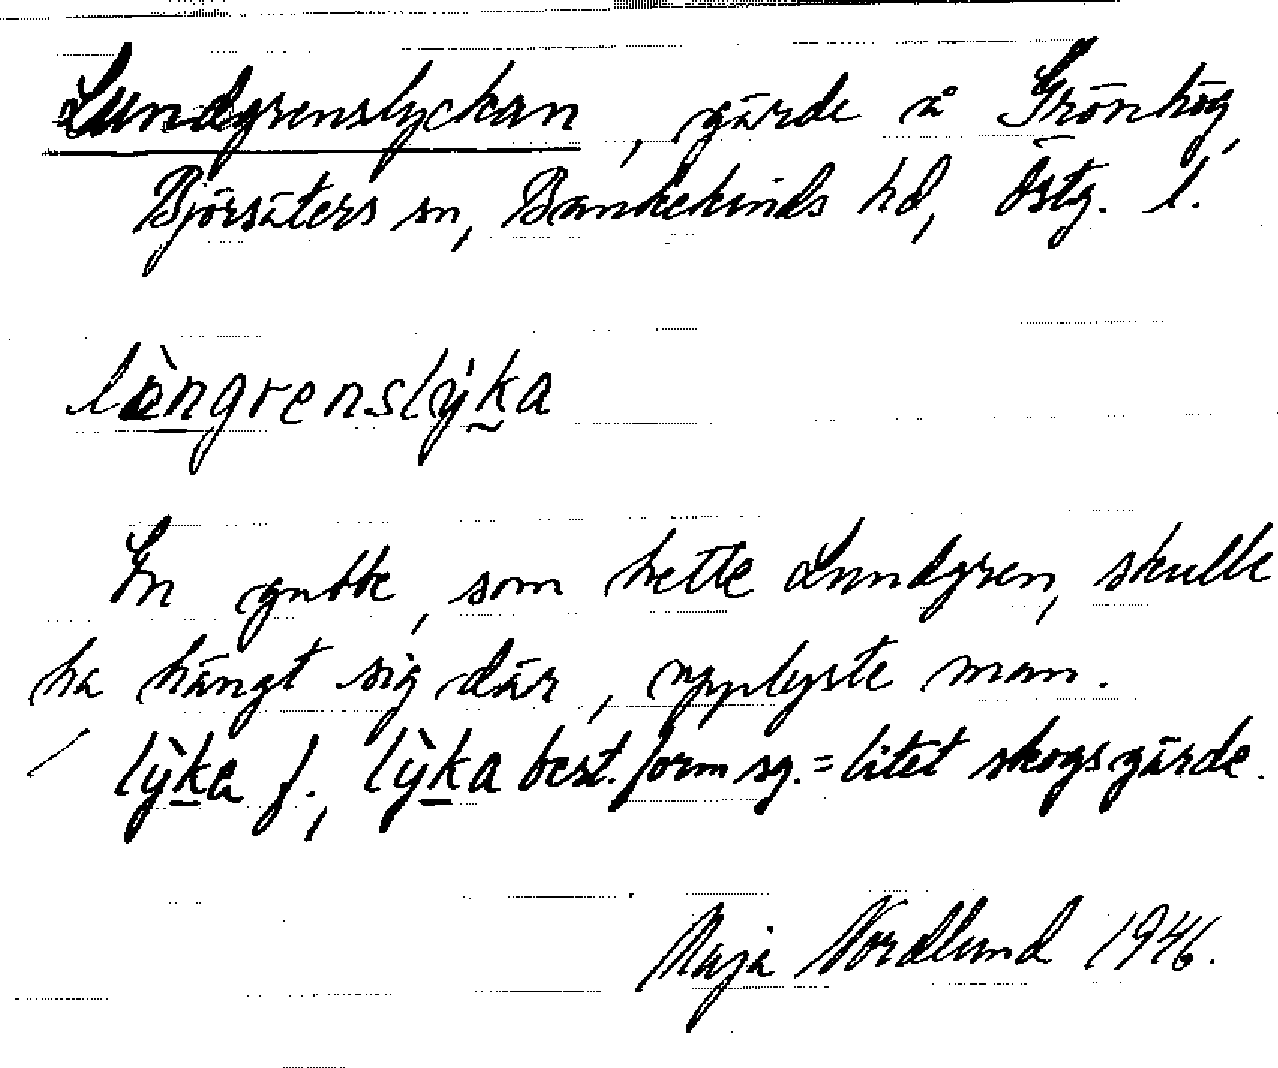 Lundgrenslyckan, gärde å Grönhög,
Björsäters sn, Bankekinds hd, Östg. l.
lèngrenslýka
En gubbe, som hette Lundgren, skulle
ha hängt sig där, upplyste man.
lỳka f., lỳka best. form sg. = litet skogsgärde.
Maja Nordlund 1946.